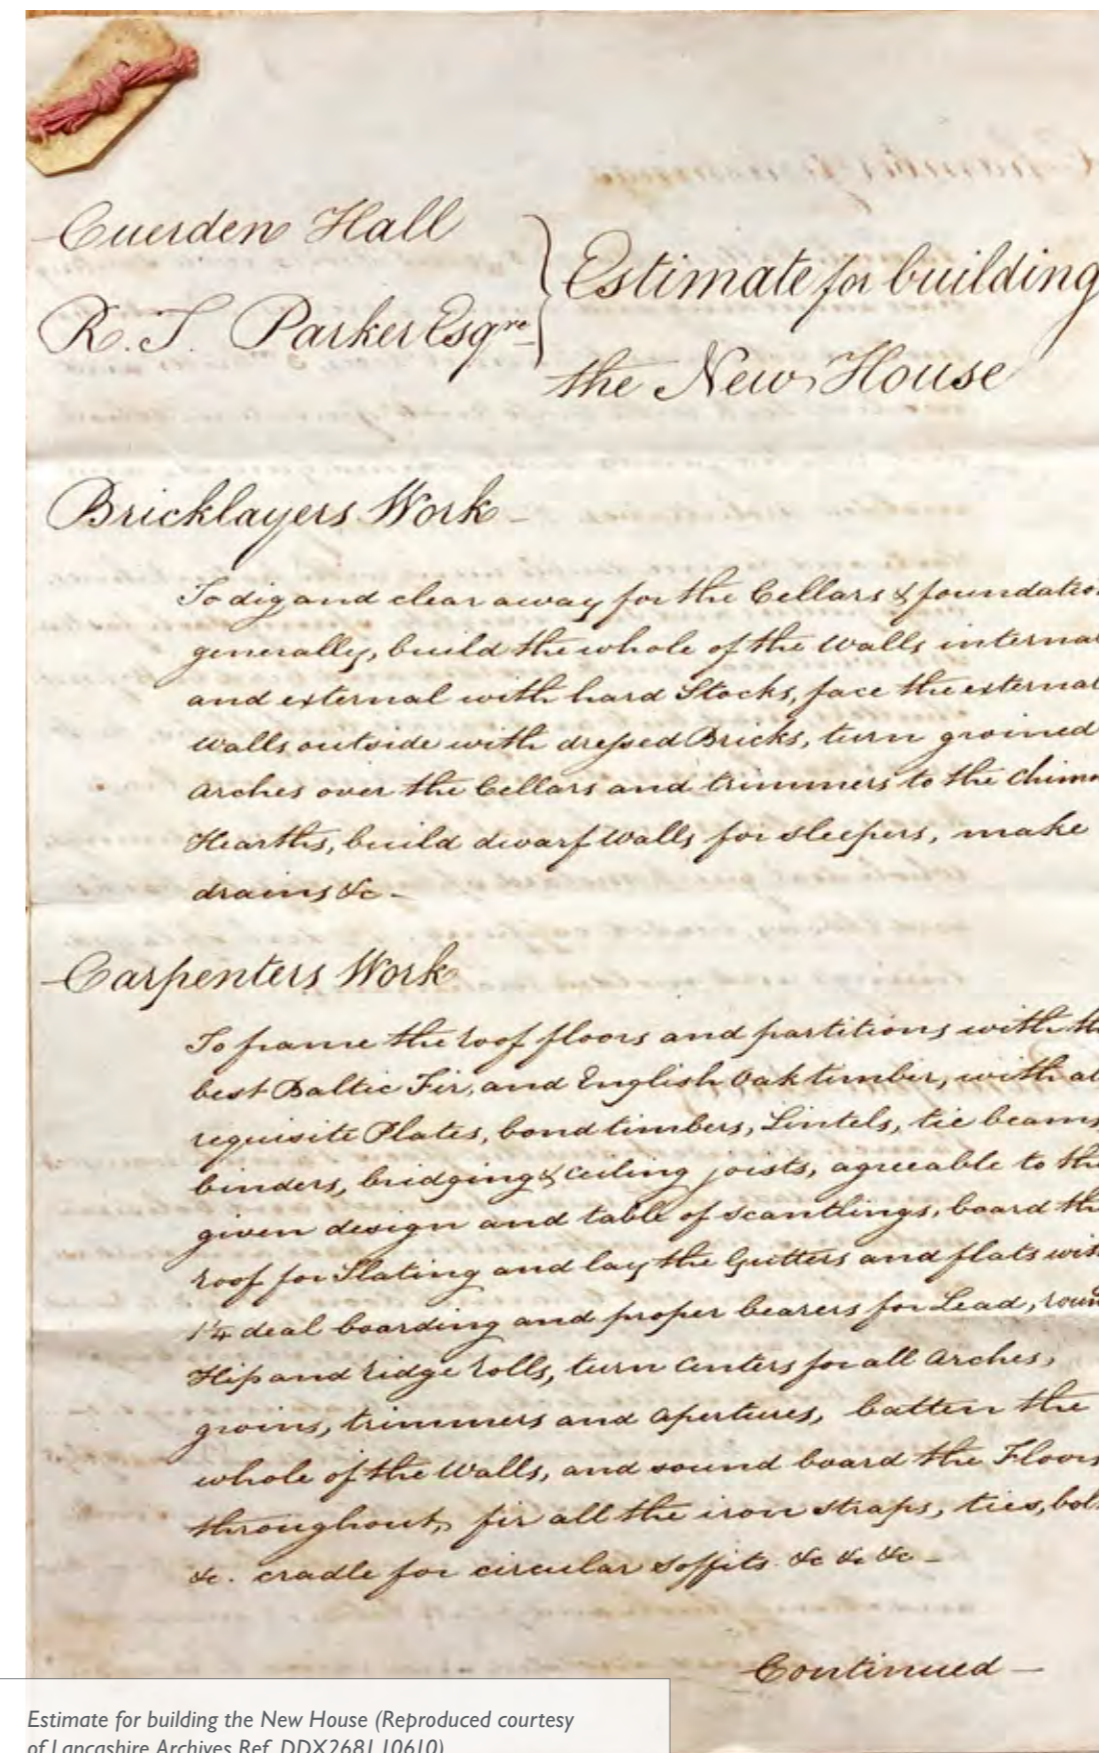 Cuerden Hall
R. T. Parker Esqre
Estimate for building
the New House
Bricklayers Work -
To dig and clear away for the Cellars & foundatio
generally, build the whole of the Walls interna
and external with hard Stocks, face the external
walls outside with dressed Bricks, turn groined
arches over the Cellars and trimmers to the Chim
Hearths, build dwarf walls for sleepers, make
drains &c -
Carpenters Work
To frame the roof floors and partitions with th
best Baltic Fir, and English Oak timber, with al
requisite Plates, bond timbers, Lintels, tie beams
binders, bridging & ceiling joists, agreeable to the
given design and table of scantlings, board th
roof for Slating and lay the Gutters and flats wit
1¼ deal boarding and proper bearers for Lead, roun
Hip and ridge rolls, turn Centers for all Arches,
groins, trimmers and apertures, batten the
whole of the Walls, and sound board the Floors
throughout, fix all the iron straps, ties, bol
&c. cradle for circular soffits &c &c &c -
Continued -
Estimate for building the New House (Reproduced courtesy
of Lancashire Archives Ref. DDX2681 10610)